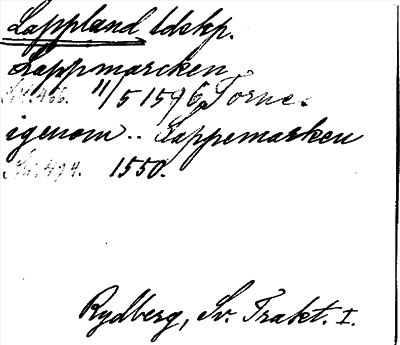 Lappland, ldskp.
Lappmarcken
11/5 1596 Torne.
igenom .. Lappemarken
1550.
Rydberg, Sv. Trakt. I.